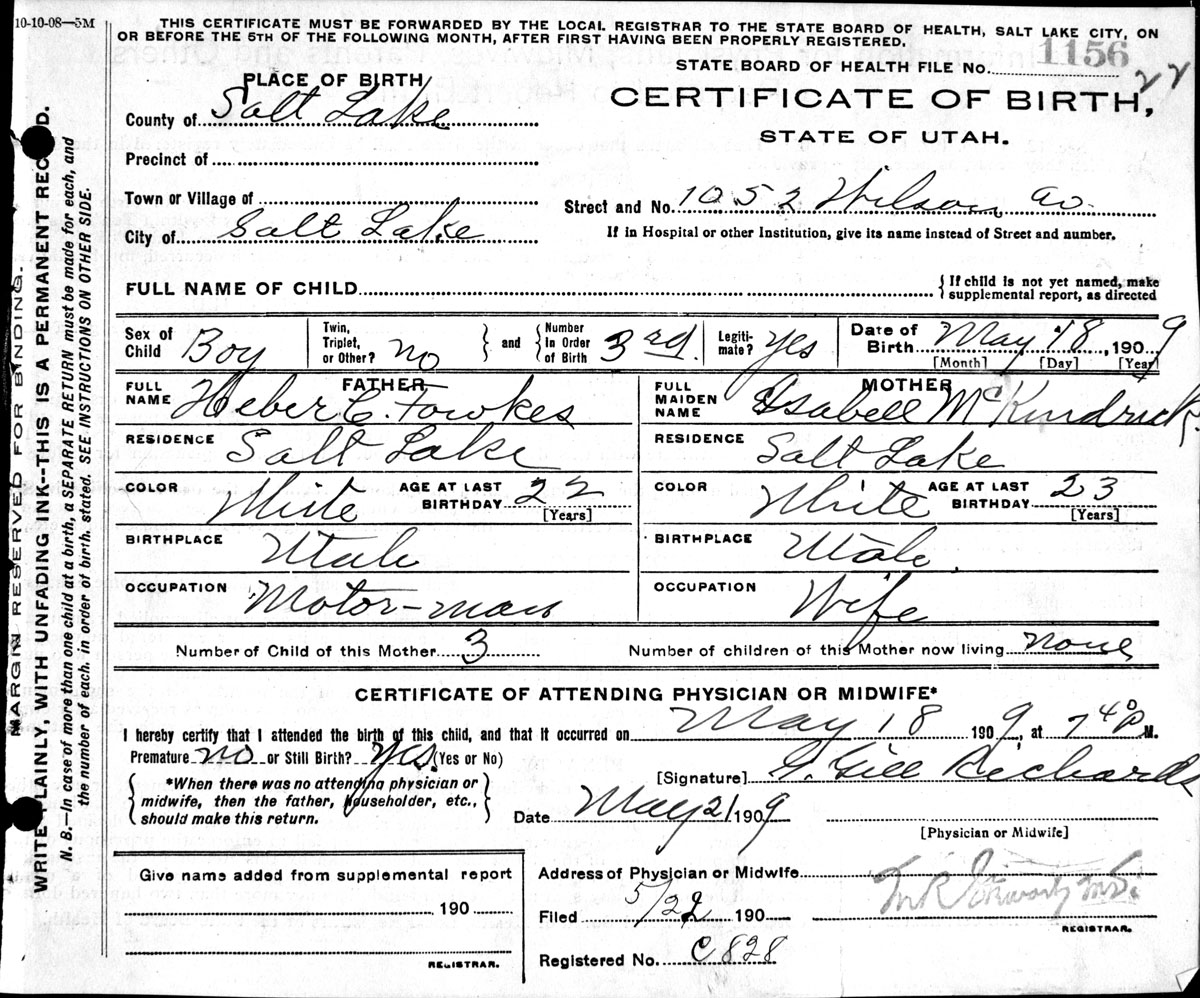 10-10-08—5M
THIS CERTIFICATE MUST BE FORWARDED BY THE LOCAL REGISTRAR TO THE STATE BOARD OF HEALTH, SALT LAKE CITY, ON
OR BEFORE THE 5TH OF THE FOLLOWING MONTH, AFTER FIRST HAVING BEEN PROPERLY REGISTERED.
STATE BOARD OF HEALTH FILE No. 1156
22
PLACE OF BIRTH
CERTIFICATE OF BIRTH,
STATE OF UTAH.
County of Salt Lake
Precinct of
Town or Village of
Street and No. 1052 Wilson av.
City of Salt Lake
If in Hospital or other Institution, give its name instead of Street and number.
FULL NAME OF CHILD
{ If child is not yet named, make supplemental report, as directed
Sex of Child Boy
Twin, Triplet, or Other? no } and { Number In Order of Birth 3rd
Legiti- mate? Yes
Date of Birth May 18, 1909
[Month] [Day] [Year]
FATHER
FULL NAME Heber C. Fowkes
MOTHER
FULL MAIDEN NAME Isabell McKindrick
RESIDENCE Salt Lake
RESIDENCE Salt Lake
COLOR White AGE AT LAST BIRTHDAY 22 [Years]
COLOR White AGE AT LAST BIRTHDAY 23 [Years]
BIRTHPLACE Utah
BIRTHPLACE Utah
OCCUPATION Motor-man
OCCUPATION Wife
Number of Child of this Mother 3
Number of children of this Mother now living none
CERTIFICATE OF ATTENDING PHYSICIAN OR MIDWIFE*
I hereby certify that I attended the birth of this child, and that it occurred on May 18 1909, at 7 40 P M.
Premature no or Still Birth? Yes. (Yes or No)
{ *When there was no attending physician or midwife, then the father, householder, etc., should make this return. }
[Signature] G. Gill Richards
Date May 21 1909
[Physician or Midwife]
Give name added from supplemental report
, 190
REGISTRAR.
Address of Physician or Midwife
Filed 5/22 190
REGISTRAR.
Registered No. C 828
MARGIN RESERVED FOR BINDING.
WRITE PLAINLY, WITH UNFADING INK--THIS IS A PERMANENT RECORD.
N. B.—In case of more than one child at a birth, a SEPARATE RETURN must be made for each, and
the number of each. in order of birth. stated. SEE INSTRUCTIONS ON OTHER SIDE.